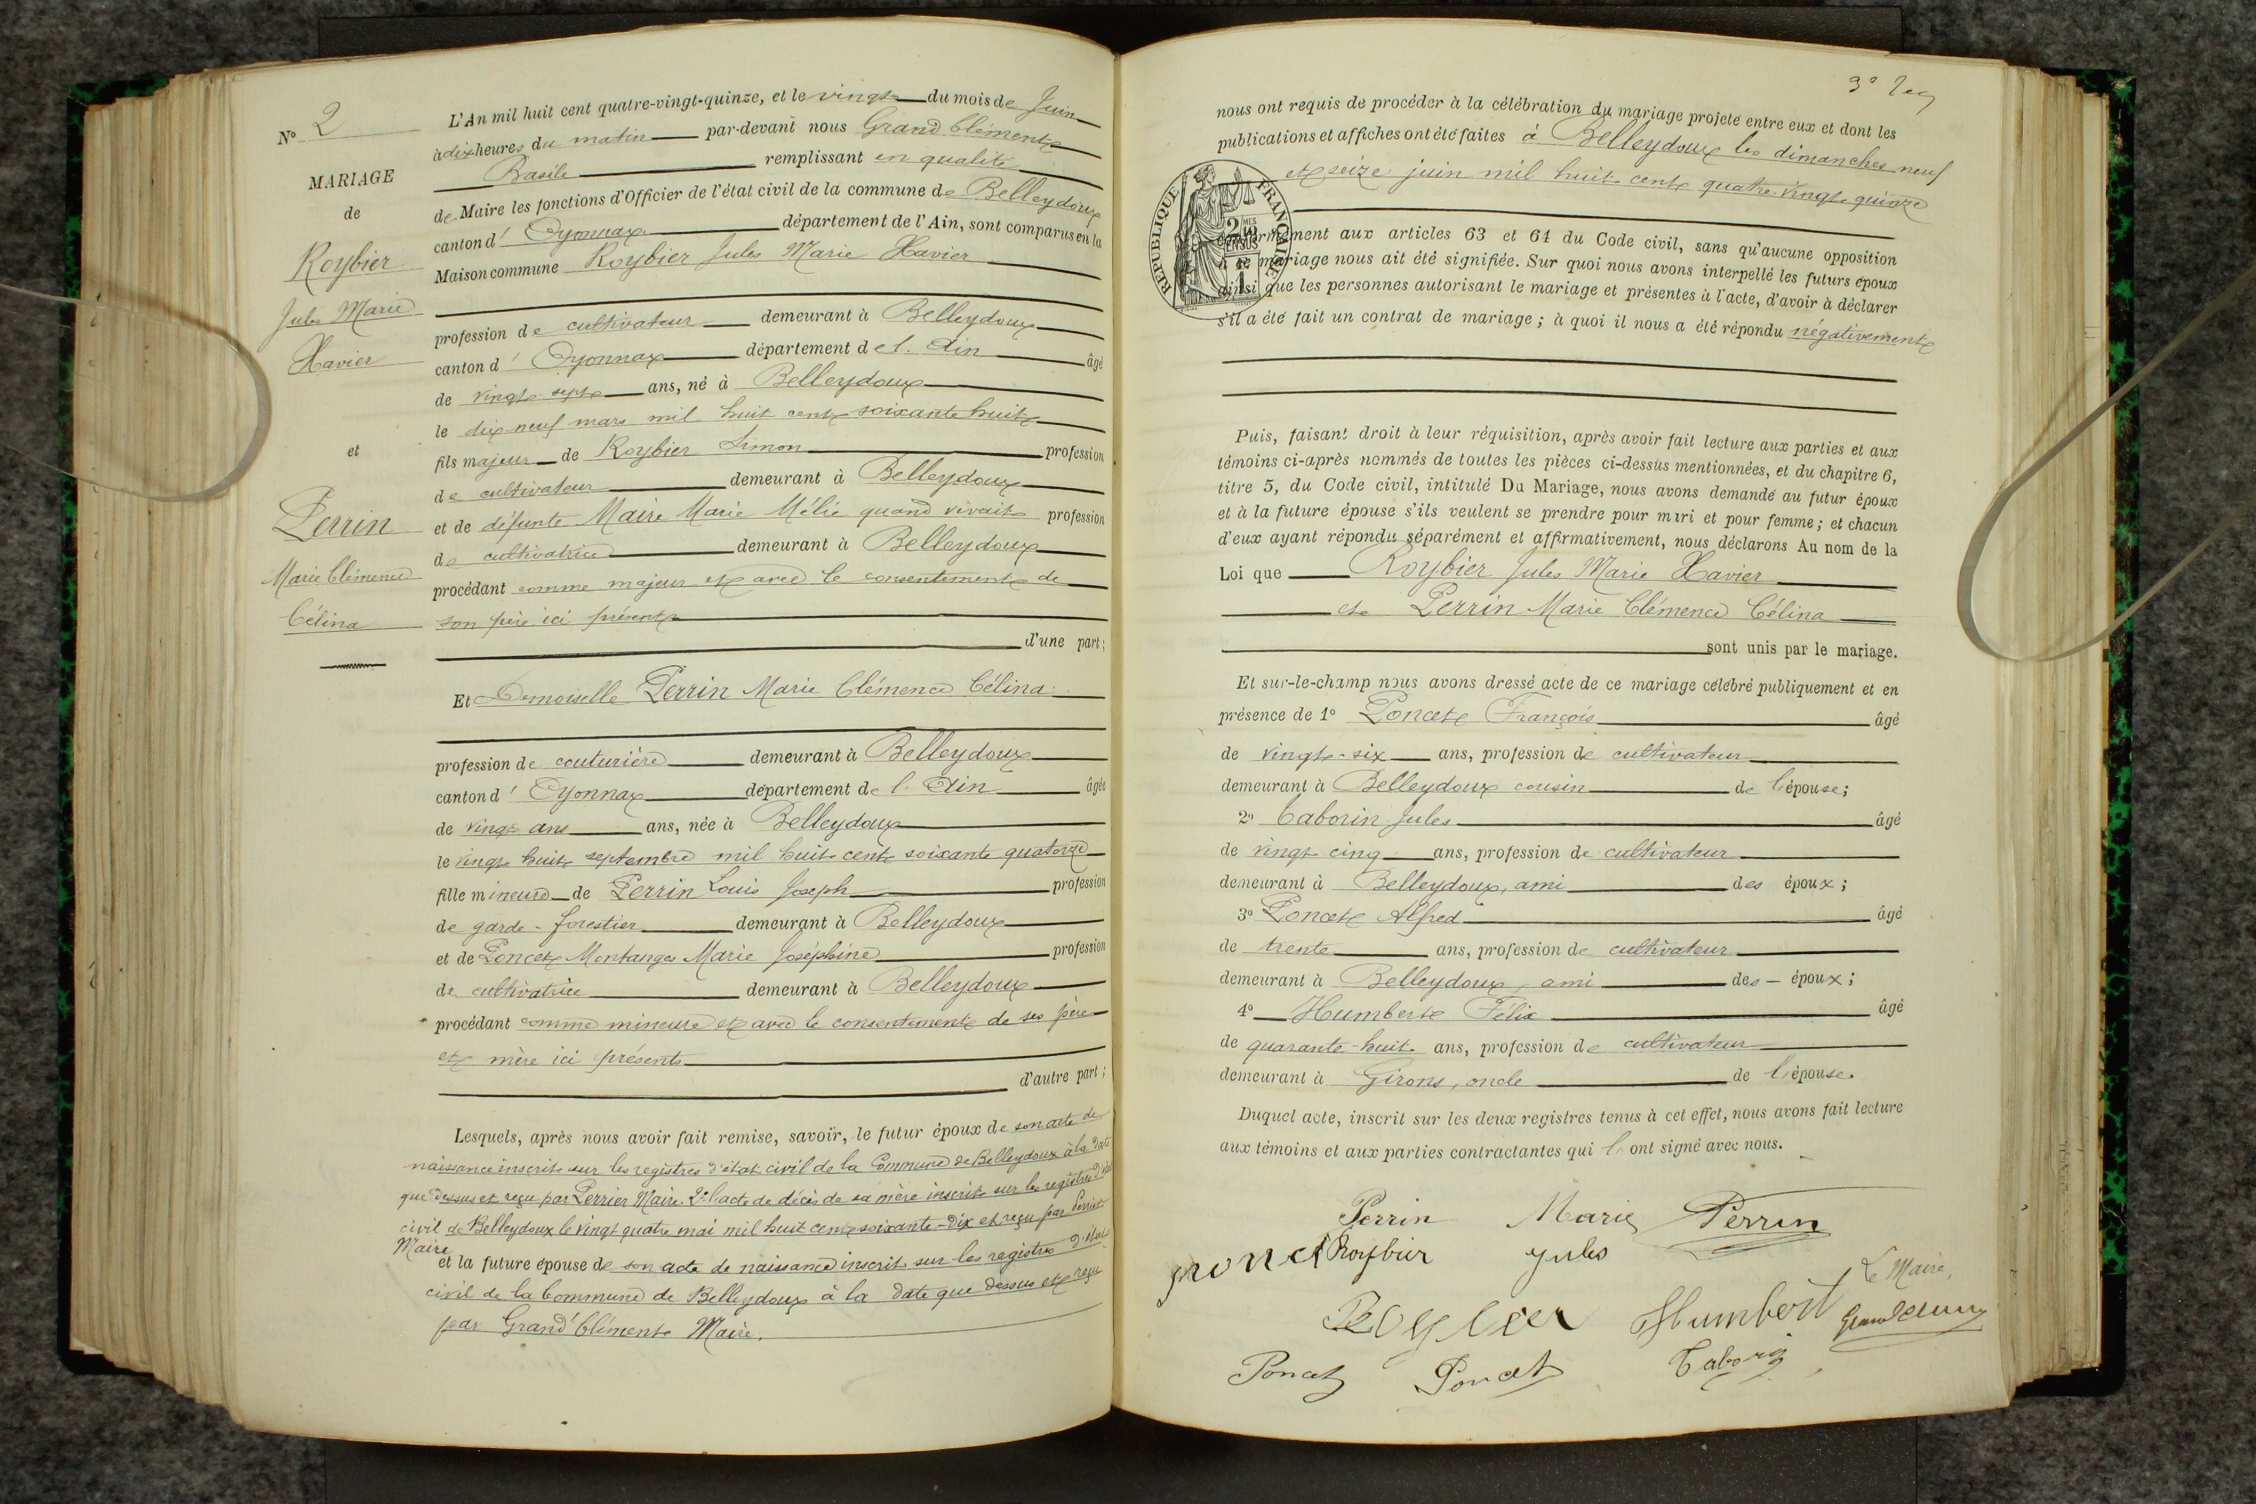 N° 2
MARIAGE
de
Roybier
Jules Marie
Xavier
et
Perrin
Marie Clémence
Célina
L'An mil huit cent quatre-vingt-quinze, et le vingt du mois de Juin
à dix heures du matin par-devant nous Grand Clément
Basile remplissant en qualité
de Maire les fonctions d'Officier de l'état civil de la commune de Belleydoux
canton d' Oyonnax département de l'Ain, sont comparus en la
Maison commune Roybier Jules Marie Xavier
profession de cultivateur demeurant à Belleydoux
canton d' Oyonnax département de l'Ain âgé
de vingt sept ans, né à Belleydoux
le dix neuf mars mil huit cent soixante huit
fils majeur de Roybier Simon profession
de cultivateur demeurant à Belleydoux
et de défunte Maire Marie Mélie quand vivait profession
de cultivatrice demeurant à Belleydoux
procédant comme majeur et avec le consentement de
son père ici présent
d'une part;
Et Demoiselle Perrin Marie Clémence Célina
profession de couturière demeurant à Belleydoux
canton d' Oyonnax département de l'Ain âgée
de vingt ans ans, née à Belleydoux
le vingt huit septembre mil huit cent soixante quatorze
fille mineure de Perrin Louis Joseph profession
de garde-forestier demeurant à Belleydoux
et de Poncet Montanges Marie Joséphine profession
de cultivatrice demeurant à Belleydoux
procédant comme mineure et avec le consentement de ses père
et mère ici présents
d'autre part;
Lesquels, après nous avoir fait remise, savoir, le futur époux de son acte de
naissance inscrit sur les registres d'état civil de la Commune de Belleydoux à la date
que dessus et reçu par Perrier Maire. 2° l'acte de décès de sa mère inscrit sur les registres d'état
civil de Belleydoux le vingt quatre mai mil huit cent soixante-dix et reçu par Perrier
Maire
et la future épouse de son acte de naissance inscrit sur les registres d'état
civil de la Commune de Belleydoux à la date que dessus et reçu
par Grand Clément Maire.
nous ont requis de procéder à la célébration du mariage projeté entre eux et dont les
publications et affiches ont été faites à Belleydoux les dimanches neuf
et seize juin mil huit cent quatre-vingt quinze
REPUBLIQUE FRANÇAISE
conformément aux articles 63 et 64 du Code civil, sans qu'aucune opposition
à ce mariage nous ait été signifiée. Sur quoi nous avons interpellé les futurs époux
ainsi que les personnes autorisant le mariage et présentes à l'acte, d'avoir à déclarer
s'il a été fait un contrat de mariage; à quoi il nous a été répondu négativement
Puis, faisant droit à leur réquisition, après avoir fait lecture aux parties et aux
témoins ci-après nommés de toutes les pièces ci-dessus mentionnées, et du chapitre 6,
titre 5, du Code civil, intitulé Du Mariage, nous avons demandé au futur époux
et à la future épouse s'ils veulent se prendre pour mari et pour femme; et chacun
d'eux ayant répondu séparément et affirmativement, nous déclarons Au nom de la
Loi que Roybier Jules Marie Xavier
et Perrin Marie Clémence Célina
sont unis par le mariage.
Et sur-le-champ nous avons dressé acte de ce mariage célébré publiquement et en
présence de 1° Poncet François âgé
de vingt-six ans, profession de cultivateur
demeurant à Belleydoux cousin de l'épouse;
2° Caborin Jules âgé
de vingt cinq ans, profession de cultivateur
demeurant à Belleydoux, ami des époux;
3° Poncet Alfred âgé
de trente ans, profession de cultivateur
demeurant à Belleydoux, ami des époux;
4° Humbert Félix âgé
de quarante-huit ans, profession de cultivateur
demeurant à Girons, oncle de l'épouse.
Duquel acte, inscrit sur les deux registres tenus à cet effet, nous avons fait lecture
aux témoins et aux parties contractantes qui l'ont signé avec nous.
Perrin Marie Perrin
Roybier Jules
Le Maire,
Roybier Humbert
Poncet Poncet Caborin